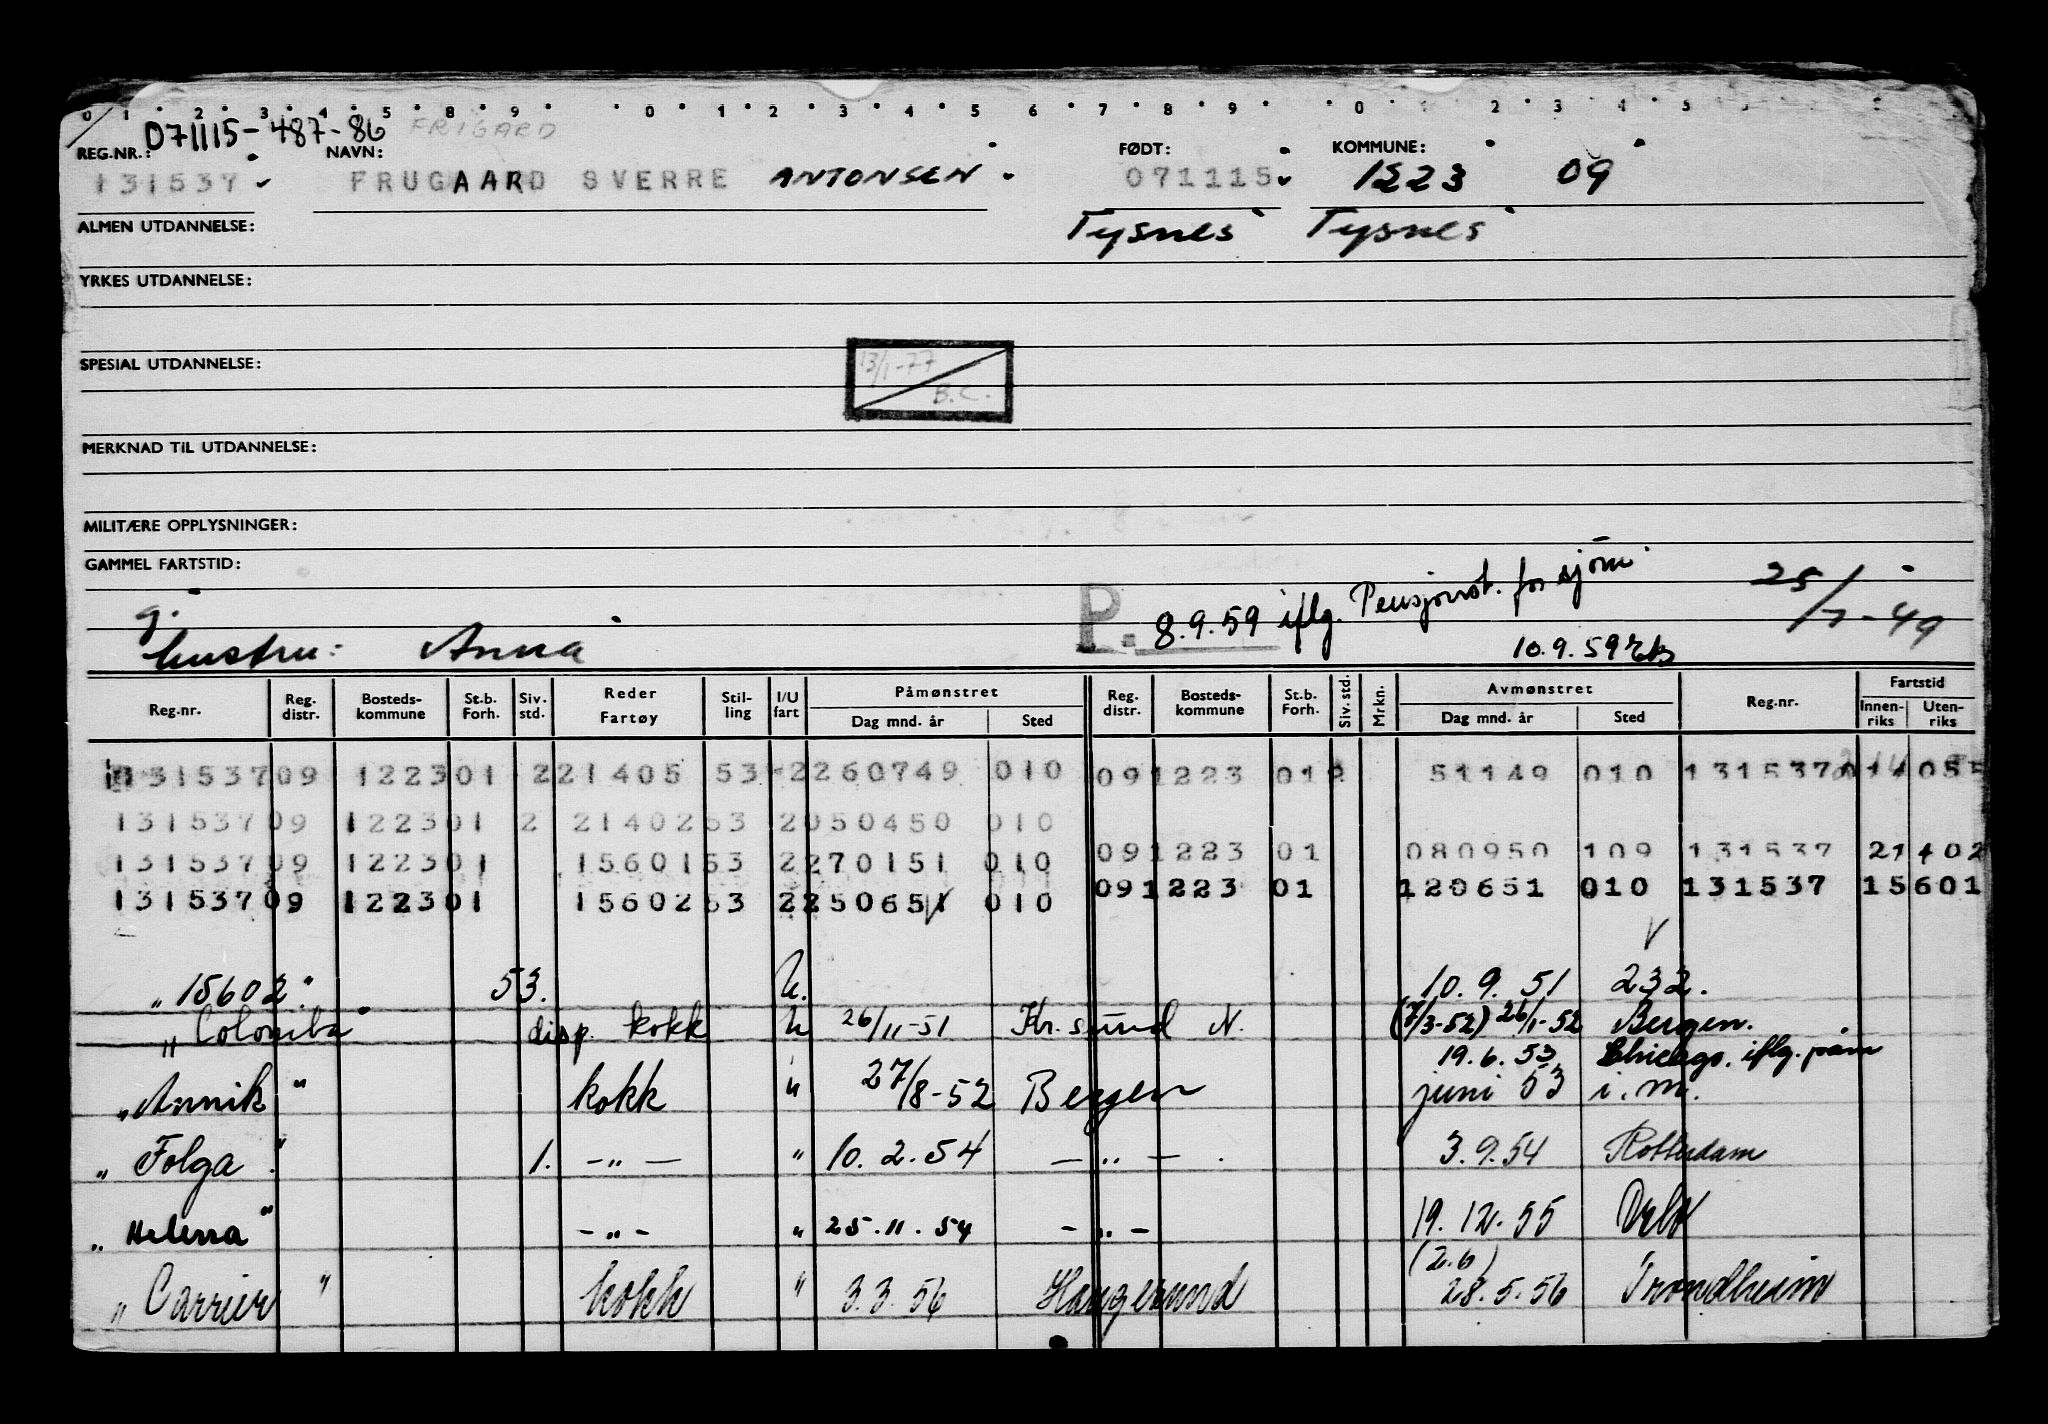 0 1 2 3 4 5 8 9 0 1 2 3 4 5 6 7 8 9 0 1 2 3 4 5
071115-487-86 FRIGARD
REG.NR.: NAVN: FØDT: KOMMUNE:
131537 FRUGAARD SVERRE ANTONSEN 071115 1223 09
ALMEN UTDANNELSE: Tysnes Tysnes
YRKES UTDANNELSE:
13/1-77
SPESIAL UTDANNELSE:
B.C.
MERKNAD TIL UTDANNELSE:
MILITÆRE OPPLYSNINGER:
GAMMEL FARTSTID:
g. P. 8.9.59 iflg. Pensjonst. for sjøm. 25/7-49
hustru: Anna 10.9.59
Reg.nr. Reg. distr. Bosteds-kommune St.b. Forh. Siv. std. Reder Fartøy Stil-ling I/U fart Påmønstret Dag mnd. år Sted Reg. distr. Bosteds-kommune St.b. Forh. Siv. std. Mrkn. Avmønstret Dag mnd. år Sted Reg.nr. Fartstid Innen-riks Uten-riks
131537 09 1223 01 2 21405 53 2 260749 010 09 1223 01 2 51149 010 131537
131537 09 1223 01 2 21402 53 2 050450 010
09 1223 01 080950 109 131537 21402
131537 09 1223 01 15601 53 2 270151 010
09 1223 01 120651 010 131537 15601
131537 09 1223 01 15602 53 2 250651 010
"15602" 53. U. 10.9.51 232.
"Colomba" disp. kokk u 26/11-51 Kr.sund N. (7/3-52) 26/1-52 Bergen.
19.6.53 Chicago. iflg. påm
"Annik" kokk " 27/8-52 Bergen juni 53 i.m.
"Folga" 1. -"- " 10.2.54 -"- 3.9.54 Rotterdam
"Helena" -"- " 25.11.54 -"- 19.12.55
(2.6)
"Carrier" kokk " 3.3.56 Haugesund 28.5.56 Trondheim